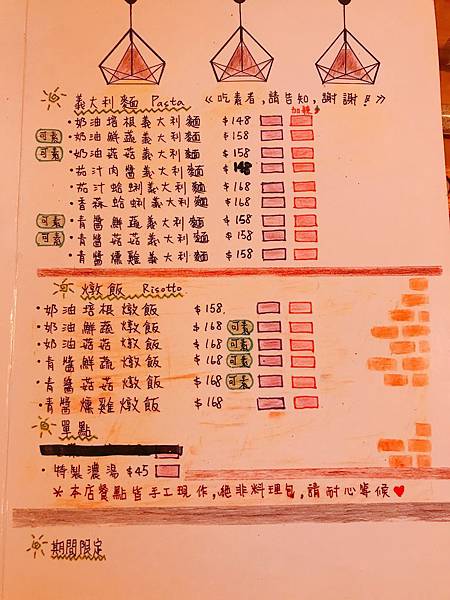 義大利麵 Pasta 《吃素者,請告知,謝謝!!》
加麵
·奶油培根義大利麵 $148
可素 ·奶油鮮蔬義大利麵 $158
可素 ·奶油菇菇義大利麵 $158
·茄汁肉醬義大利麵
·茄汁蛤蜊義大利麵 $168
·香蒜蛤蜊義大利麵 $168
可素 ·青醬鮮蔬義大利麵 $158
可素 ·青醬菇菇義大利麵 $158
·青醬燻雞義大利麵 $158
燉飯 Risotto
·奶油培根燉飯 $158.
·奶油鮮蔬燉飯 $168 可素
·奶油菇菇燉飯 $168 可素
·青醬鮮蔬燉飯 $168 可素
·青醬菇菇燉飯 $168 可素
·青醬燻雞燉飯 $168
單點
·特製濃湯 $45
※本店餐點皆手工現作,絕非料理包,請耐心等候♥
期間限定